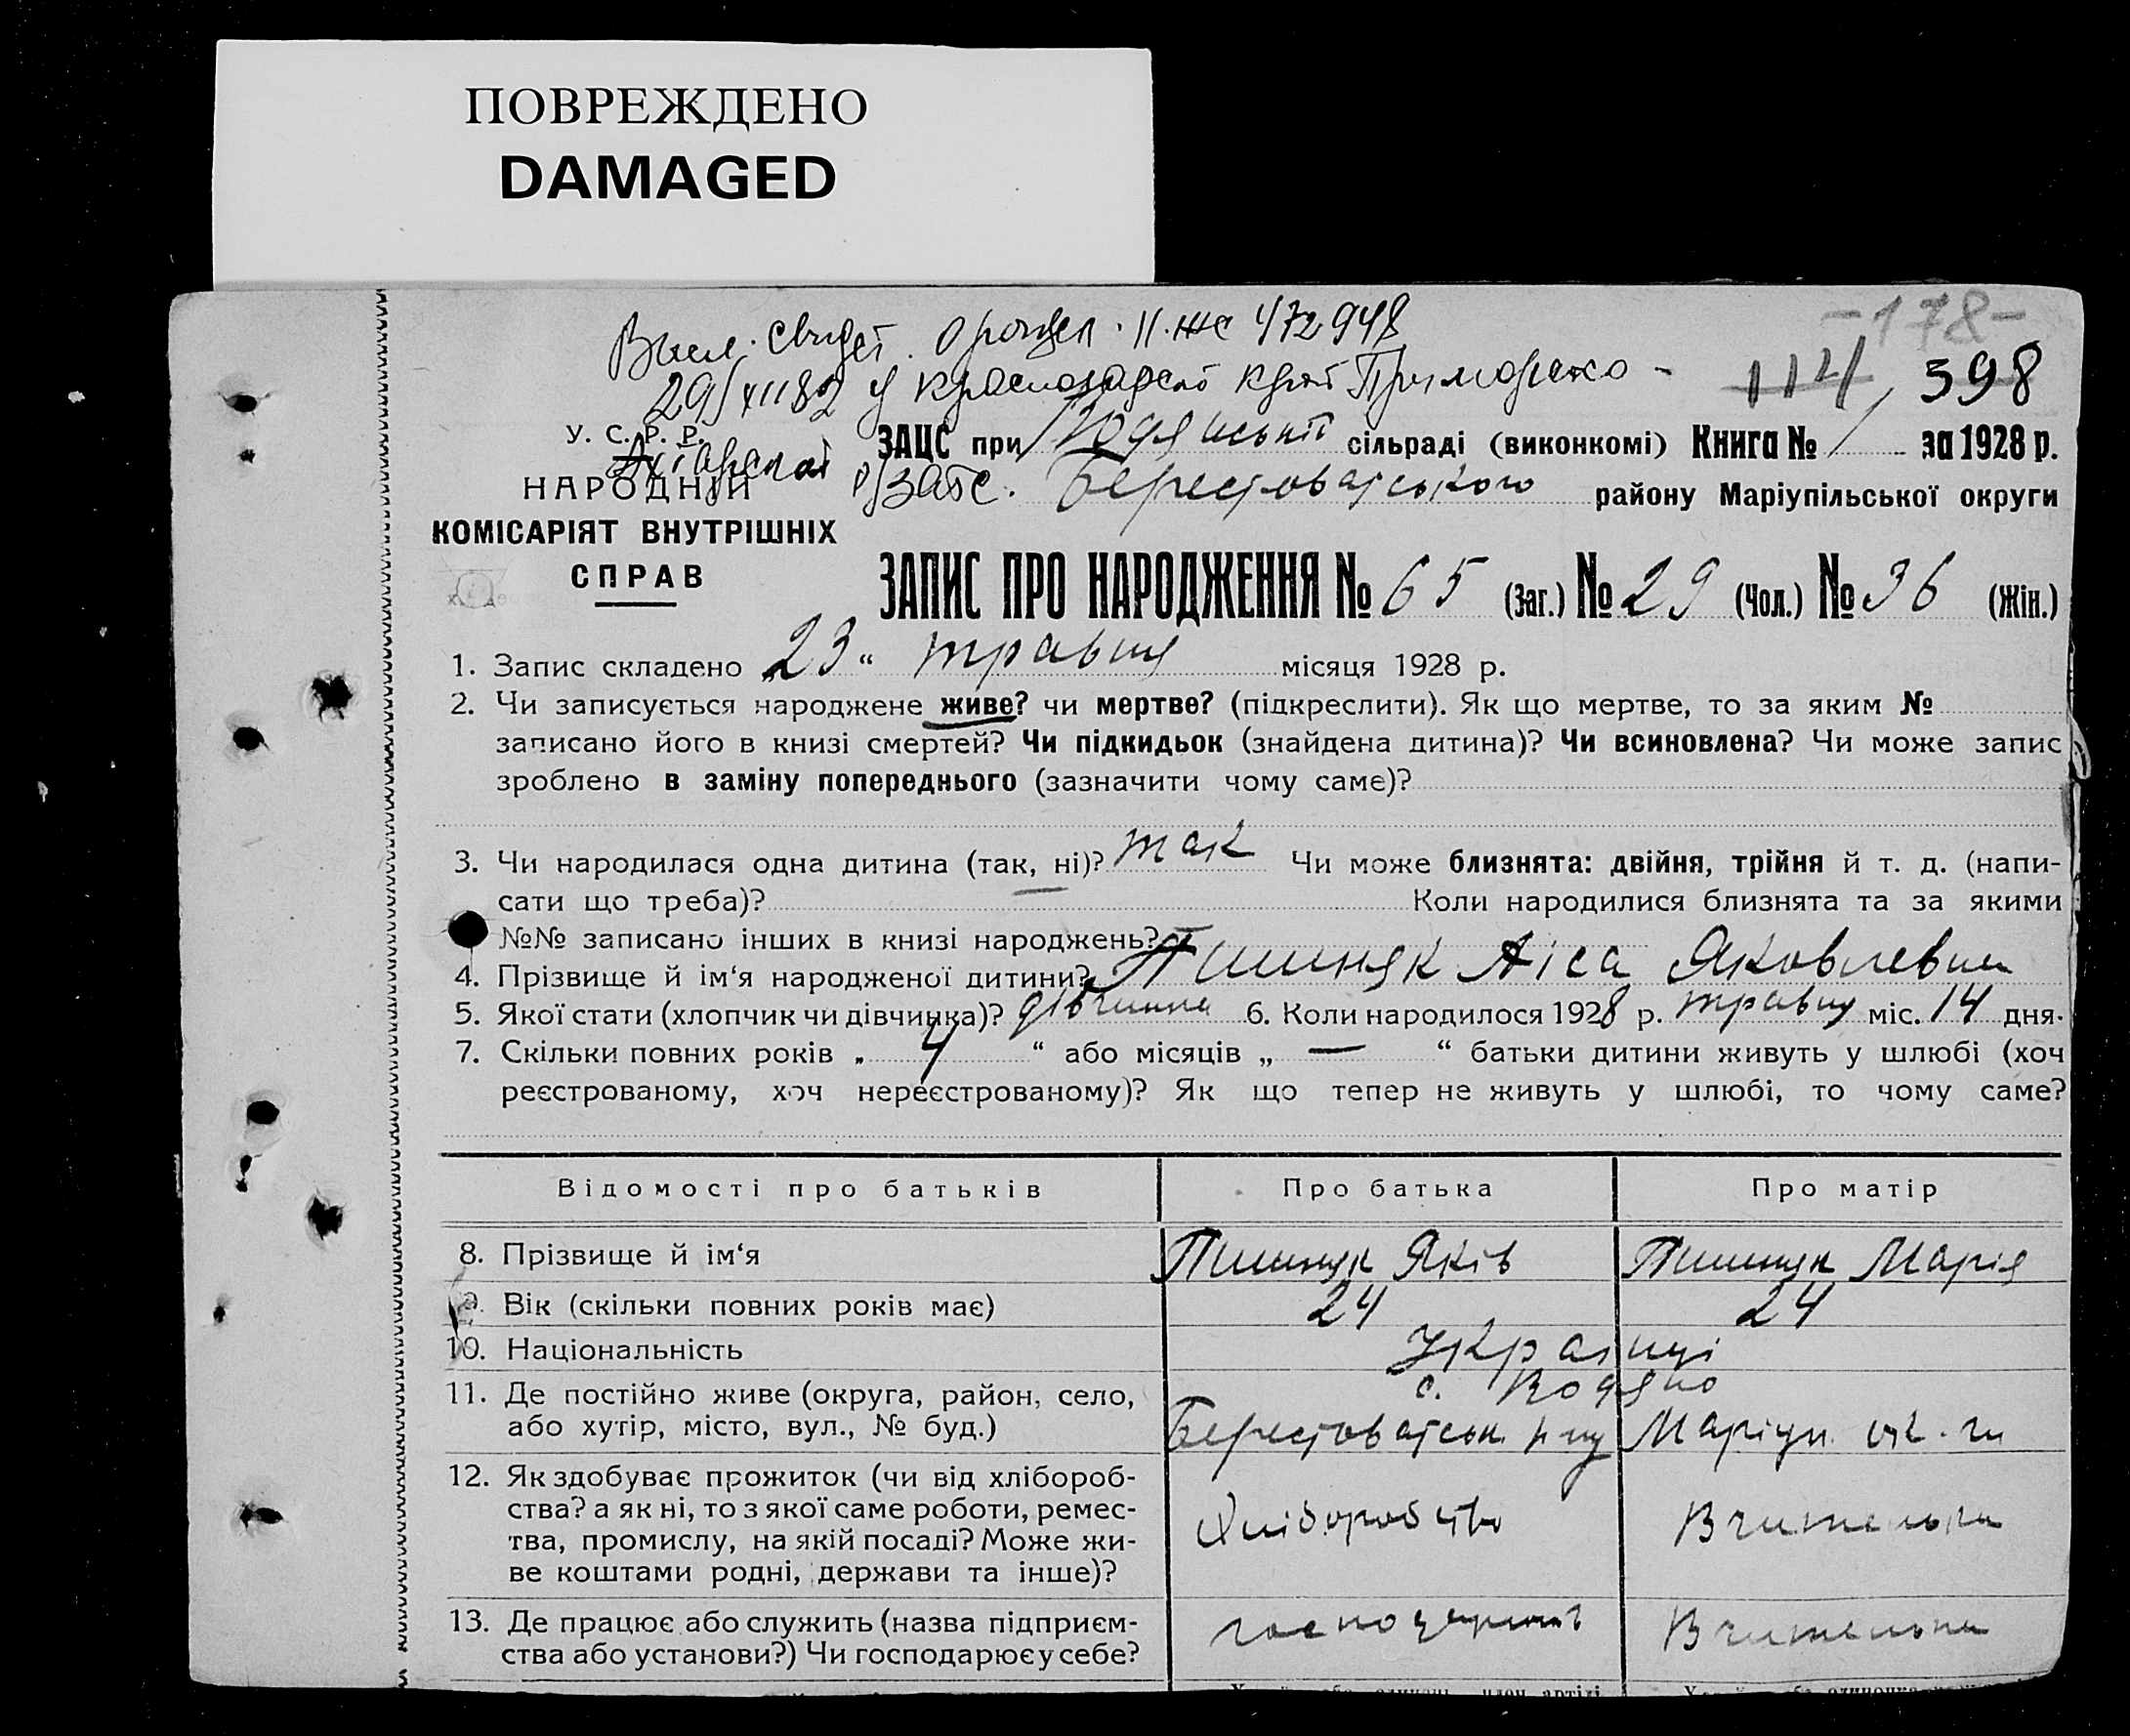 ПОВРЕЖДЕНО
DAMAGED
-178-
114 398
29/XII 82 у
У. С. Р. Р.
НАРОДНІЙ
КОМІСАРІЯТ ВНУТРІШНІХ
СПРАВ
ЗАЦС при Водянській сільраді (виконкомі) Книга № 1 за 1928 р.
Берестоватського району Маріупільської округи
ЗАПИС ПРО НАРОДЖЕННЯ № 65 (Заг.) № 29 (Чол.) № 36 (Жін.)
1. Запис складено „23“ травня місяця 1928 р.
2. Чи записується народжене живе? чи мертве? (підкреслити). Як що мертве, то за яким №
записано його в книзі смертей? Чи підкидьок (знайдена дитина)? Чи всиновлена? Чи може запис
зроблено в заміну попереднього (зазначити чому саме)?
3. Чи народилася одна дитина (так, ні)? так Чи може близнята: двійня, трійня й т. д. (напи-
сати що треба)? — Коли народилися близнята та за якими
№№ записано інших в книзі народжень? —
4. Прізвище й ім‘я народженої дитини? Яковлевна
5. Якої стати (хлопчик чи дівчинка)? дівчинка 6. Коли народилося 1928 р. травня міс. 14 дня.
7. Скільки повних років „ 4 “ або місяців „ — “ батьки дитини живуть у шлюбі (хоч
реєстрованому, хоч нереєстрованому)? Як що тепер не живуть у шлюбі, то чому саме?
Відомості про батьків Про батька Про матір
8. Прізвище й ім‘я Яків Марія
9. Вік (скільки повних років має) 24 24
10. Національність Українці
11. Де постійно живе (округа, район, село, с. Водяно
або хутір, місто, вул., № буд.) Берестоватськ. р-ну Маріуп. ок-ги
12. Як здобуває прожиток (чи від хлібороб-
ства? а як ні, то з якої саме роботи, ремес- Хліборобство Вчителька
тва, промислу, на якій посаді? Може жи-
ве коштами родні, держави та інше)?
13. Де працює або служить (назва підприєм- Вчителька
ства або установи?) Чи господарює у себе?